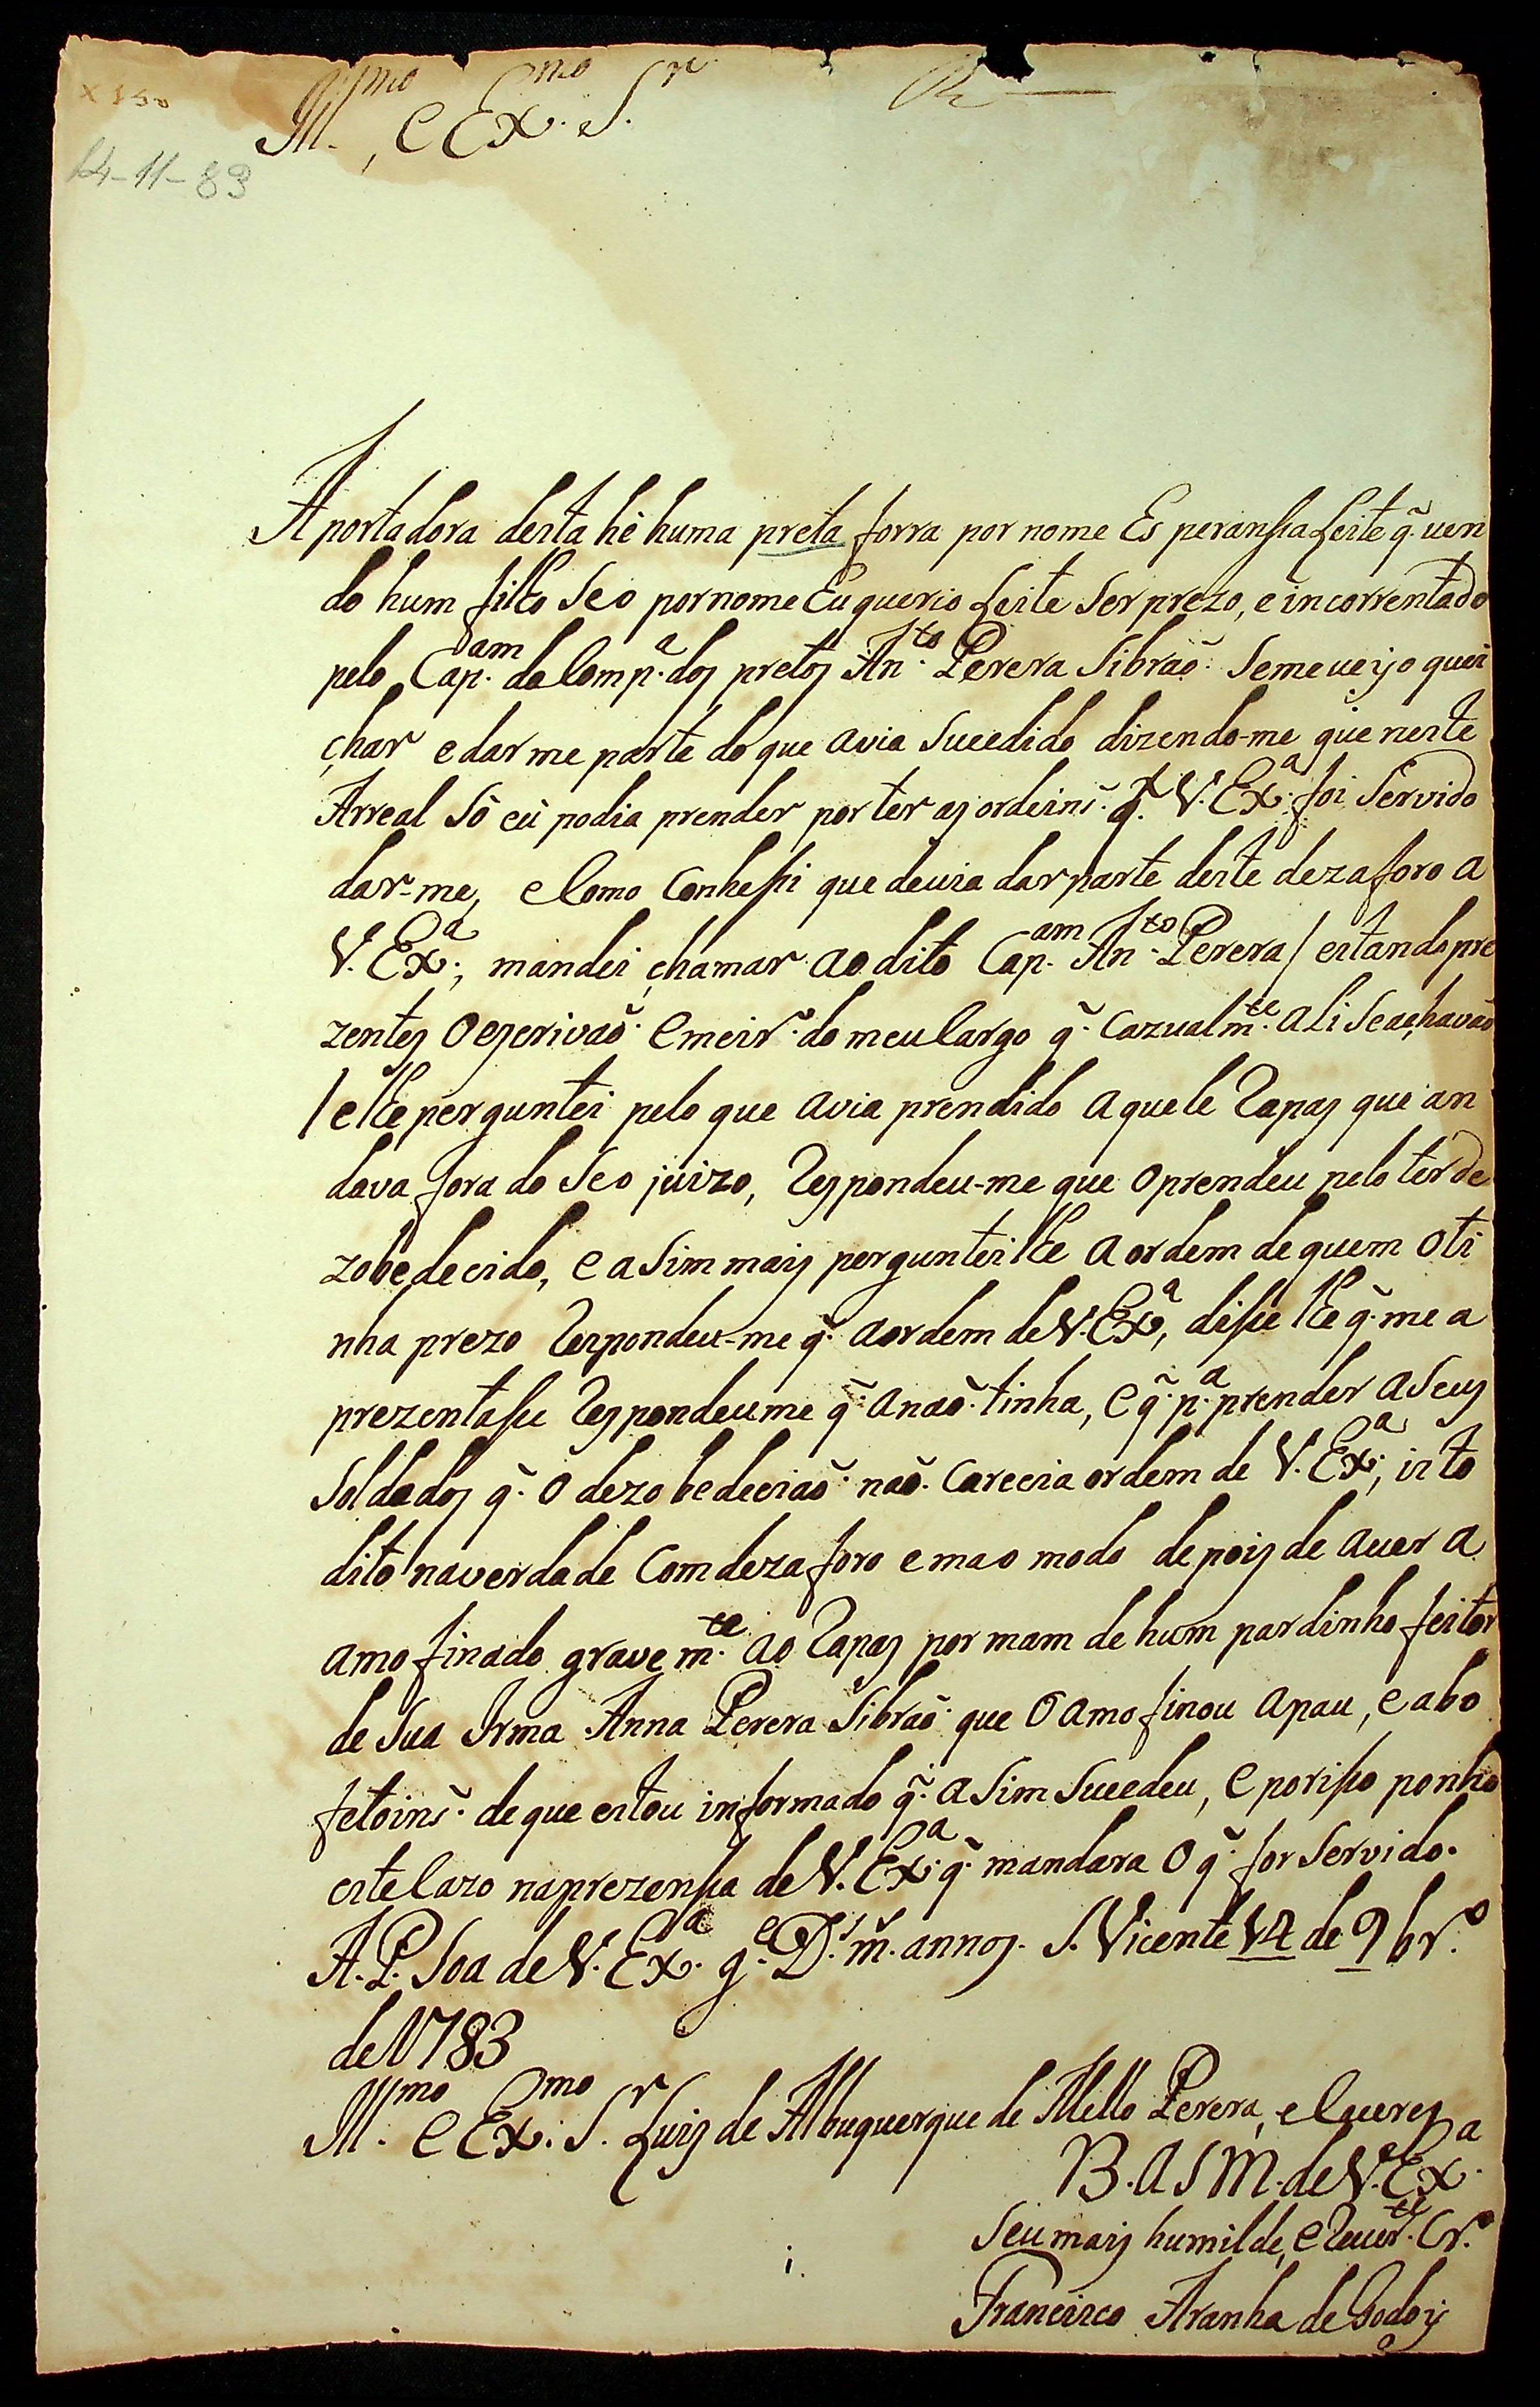 x 150
14-11-83
Ill.mo, e Ex.mo S.r
R.
A portadora desta hê huma preta forra por nome Esperansa Leite q̃. uen
do hum filho seo por nome Euquerio Leite ser prezo, e incorrentado
pelo Cap.am da Comp.a dos pretos An.to Perera Sibraõ. se me ueijo quei
char e dar me parte do que avia sucedido dizendo-me que neste
Arreal só eû podia prender por ter as ordeins. q̃. V. Ex.a foi servido
dar-me, e Como Conhessi que deuia dar parte deste dezaforo a
V. Ex.a, mandei chamar ao dito Cap.am An.to Perera / estando pre
zentes o escrivaõ. e meir.o do meu Cargo q̃. Cazualm.te ali se achavaõ
/ e lhe perguntei pelo que avia prendido aquele Rapas que an
dava fora do seo juizo, Respondeu-me que o prendeu pelo ter de
zobedecido, e asim mais perguntei lhe a ordem de quem o ti
nha prezo Respondeu-me q̃. a ordem de V. Ex.a, disse lhe q̃. me a
prezentasse Respondeume q̃. a naõ. tinha, e q̃. p.a prender a seus
soldados q̃. o dezobedeciaõ. naõ. Carecia ordem de V. Ex.a, isto
dito na verdade Com dezaforo e mao modo depois de auer a
amofinado gravem.te ao Rapas por mam de hum pardinho feitor
de sua Irma Anna Perera Sibraõ. que o amofinou a pau, e a bo
fetoins. de que estou informado q̃. asim sucedeu, e porisso ponho
este Cazo na prezensa de V. Ex.a q̃. mandara o q̃. for servido.
A. P. Soa de V. Ex.a g.e D.s m. annos. S. Vicente 14 de 9br.o
de 1783
Ill.mo e Ex.mo S.r Luis de Albuquerque de Mello Perera, e Caceres
B. as M. de V. Ex.a
Seu mais humilde, e Reuer.te Cr.o
Francisco Aranha de Godoy